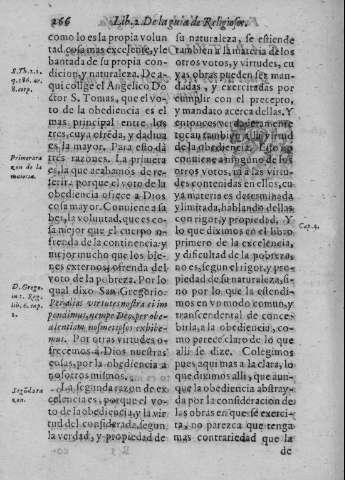 266 Lib. 2. De la guia de Religiosos.
como lo es la propia volun
tad, cosa mas excelente, y le
bantada de su propia con
dicion, y naturaleza. De a-
qui collige el Angelico Do
ctor S. Tomas, que el vo-
to de la obediencia es el
mas principal entre los
tres, cuya ofrēda, y dadiua
es la mayor. Para esto dà
tres razones. La primera
es, la que acabamos de re-
ferir, porque el voto de la
obediencia ofrece a Dios
cosa mayor. Conuiene a sa
ber, la voluntad, que es co-
sa mejor que el cuerpo o-
frenda de la continencia, y
mejor mucho que los bie-
nes externos, ofrenda del
voto de la pobreza. Por lo
qual dixo San Gregorio:
Per alias virtutes nostra ei im
pendimus, nempe Deo, per obe-
dientiam nosmetipsos exhibe-
mus. Por otras virtudes o-
frecemos a Dios nuestras
cosas, por la obediencia a
nosotros mismos.
La segunda razon de ex
celencia es, porque el vo-
to de la obediencia, y la vir
tud del considerada, segun
la verdad, y propiedad de
S. Th. 2. 2.
q. 186. ar.
8. corp.
Primera ra
zon de la
D. Grego.
in 1. Reg.
lib. 6. cap.
2.
Segūda ra
zon.
su naturaleza, se estiende
tambien a la materia de los
otros votos, y virtudes, cu
yas obras pueden ser man-
dadas, y exercitadas por
cumplir con el precepto,
y mandato acerca dellas. Y
entonces verdaderamente
tocan tambien a la virtud
de la obediencia. Esto no
conuiene a ninguno de los
otros votos, ni a las virtu-
des contenidas en ellos, cu
ya materia es determinada
y limitada, hablando dellas
con rigor, y propiedad. Y
lo que diximos en el libro
primero de la excelencia,
y dificultad de la pobreza,
no es, segun el rigor, y pro-
piedad de su naturaleza, si-
no por lo que la estendi-
mos en vo modo comun, y
transcendental de conce-
birla, a la obediencia, co-
mo parece claro de lo que
alli se dize. Colegimos
pues aqui mas a la clara, lo
que diximos alli, que aun-
que la obediencia abstray-
da por la consideracion de
las obras en que se exerci-
ta, no parezca que tenga
mas contrariedad que la
de
Cap. 4.